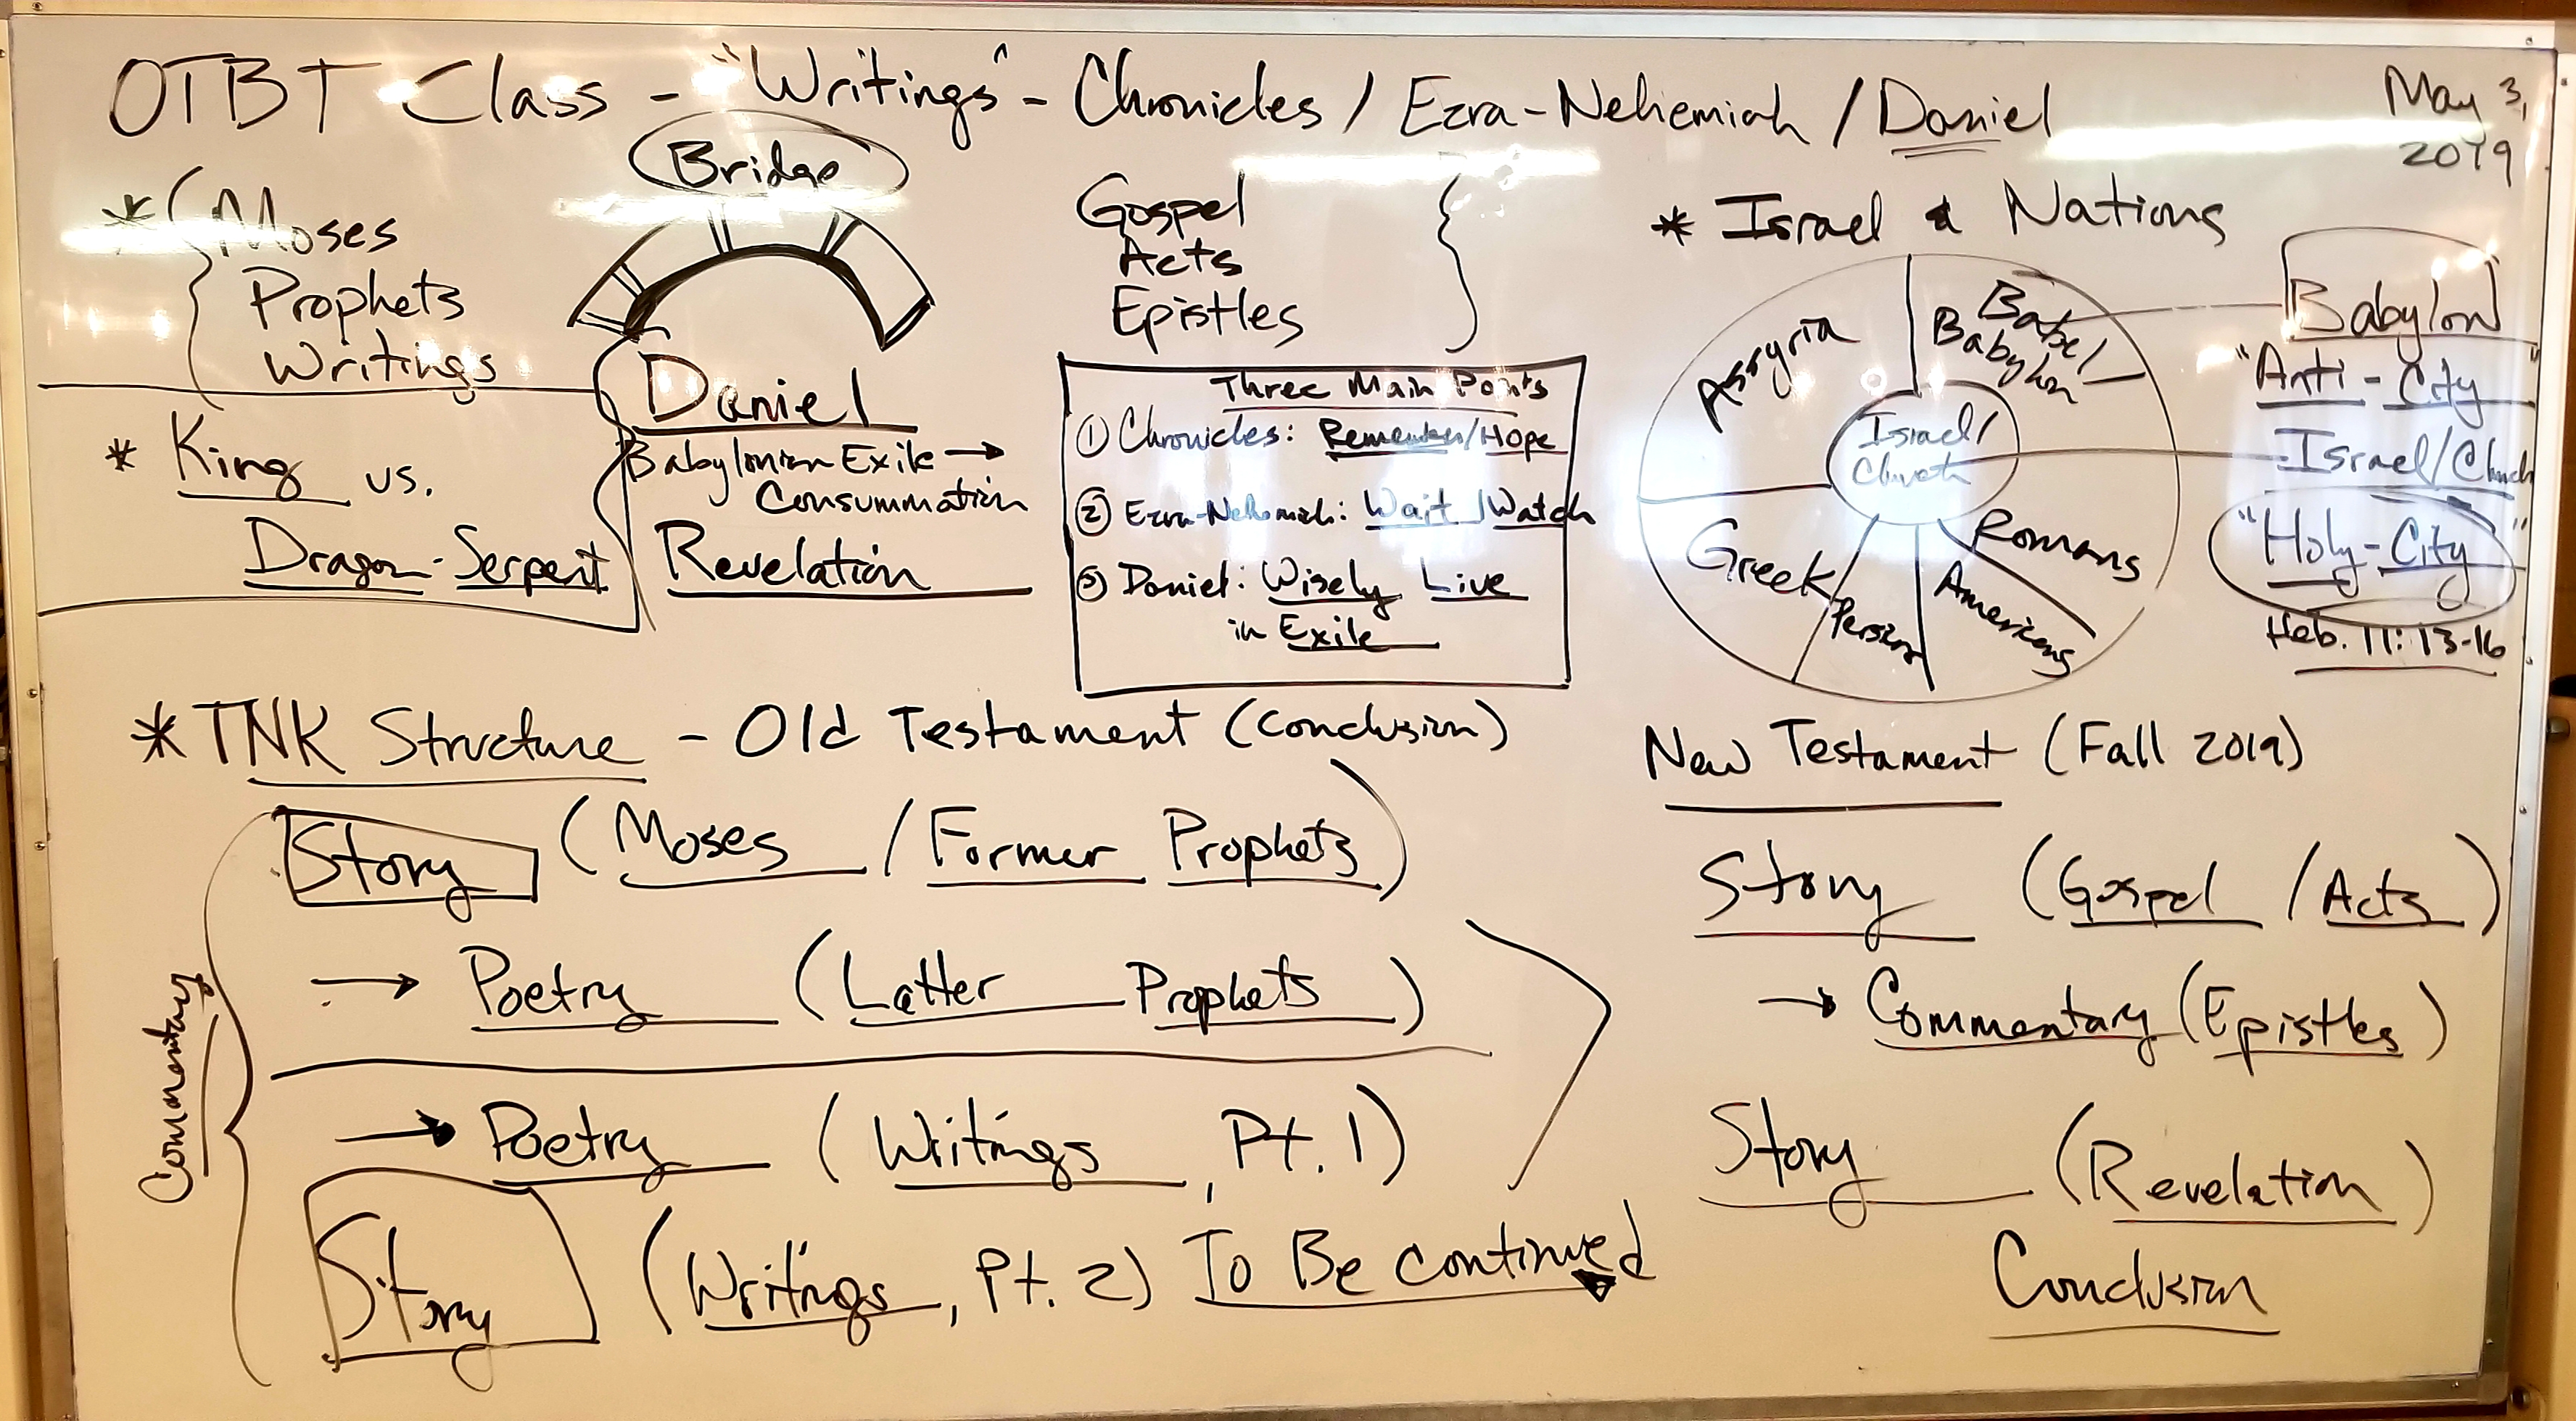 OTBT Class - "Writings" - Chronicles / Ezra-Nehemiah / Daniel
May 3,
2019
* Moses
Prophets
Writings
Bridge
Gospel
Acts
Epistles
* King vs.
Dragon-Serpent
Daniel
Babylonian Exile →
Consummation
Revelation
Three Main Points
① Chronicles: Remember/Hope
② Ezra-Nehemiah: Wait/Watch
③ Daniel: Wisely Live
in Exile
* Israel & Nations
Assyria
Babel/
Babylon
Israel/
Church
Greek
Persian
Americans
Romans
Babylon
"Anti-City"
Israel/Church
"Holy-City"
Heb. 11:13-16
* TNK Structure - Old Testament (Conclusion)
Commentary
Story (Moses / Former Prophets)
→ Poetry (Latter Prophets)
→ Poetry (Writings, Pt. 1)
Story (Writings, Pt. 2) To Be continued
New Testament (Fall 2019)
Story (Gospel / Acts)
→ Commentary (Epistles)
Story (Revelation)
Conclusion